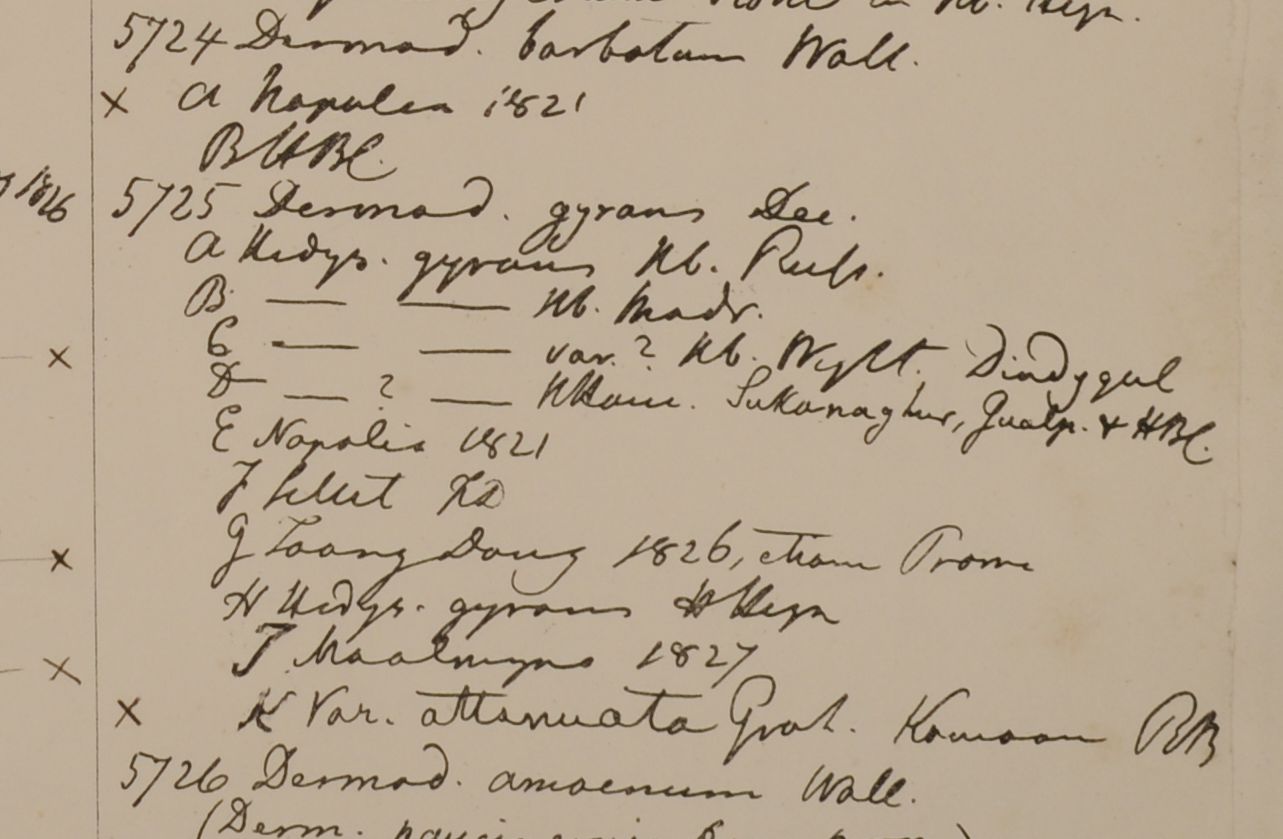 5724 Desmod. barbatum Wall.
× A Napalia 1821
B HBC.
1826
5725 Desmod. gyrans Dec.
A Hedys. gyrans Hb. Russ.
B — — Hb. Madr.
× C — — var.? Hb. Wight. Dindygul
D — ? — HHam. Sukanaghur, Gualp. & HBC.
E Napalia 1821
F Sillet FD
× G Taong Dong 1826, etiam Prome
H Hedys. gyrans HHeyn
× I Moalmyne 1827
× K Var. attenuata Grah. Kamaon RB
5726 Desmod. amoenum Wall.
(Desm.